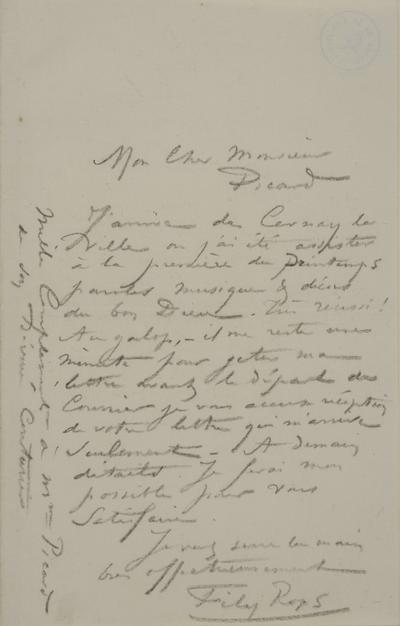 Mon Cher Monsieur
Picard
J'arrive de Cernay la
Ville où j'ai été assister
à la première du Printemps
paroles musique & décors
du bon Dieu. Très réussi!
Au galop, – il me reste une
minute pour jeter ma
lettre avant le départ du
Courrier je vous accuse réception
de votre lettre qui m'arrive
seulement – A demain
détails. Je ferai mon
possible pour vous
satisfaire.
Je vous serre les mains
bien affectueusement
Fély Rops
Mille Compliments à Mme Picard
de son